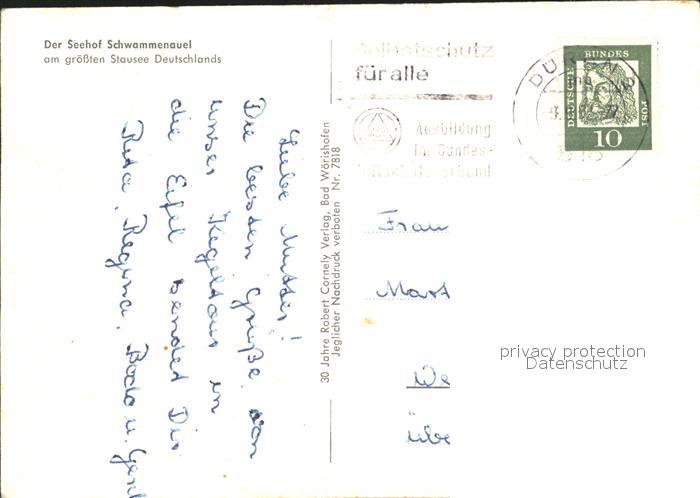 Der Seehof Schwammenauel
am größten Stausee Deutschlands
Liebe Mutter!
Die besten Grüße von
unser Kegeltour in
die Eifel sendet Dir
Rita, Regina, Bodo u. Gerd
30 Jahre Robert Cornely Verlag, Bad Wörishofen
Jeglicher Nachdruck verboten Nr. 7818
Selbstschutz
für alle
Ausbildung
im Bundes-
luftschutzverband
DÜREN
DEUTSCHE BUNDESPOST
10
Frau
We
übe
privacy protection
Datenschutz